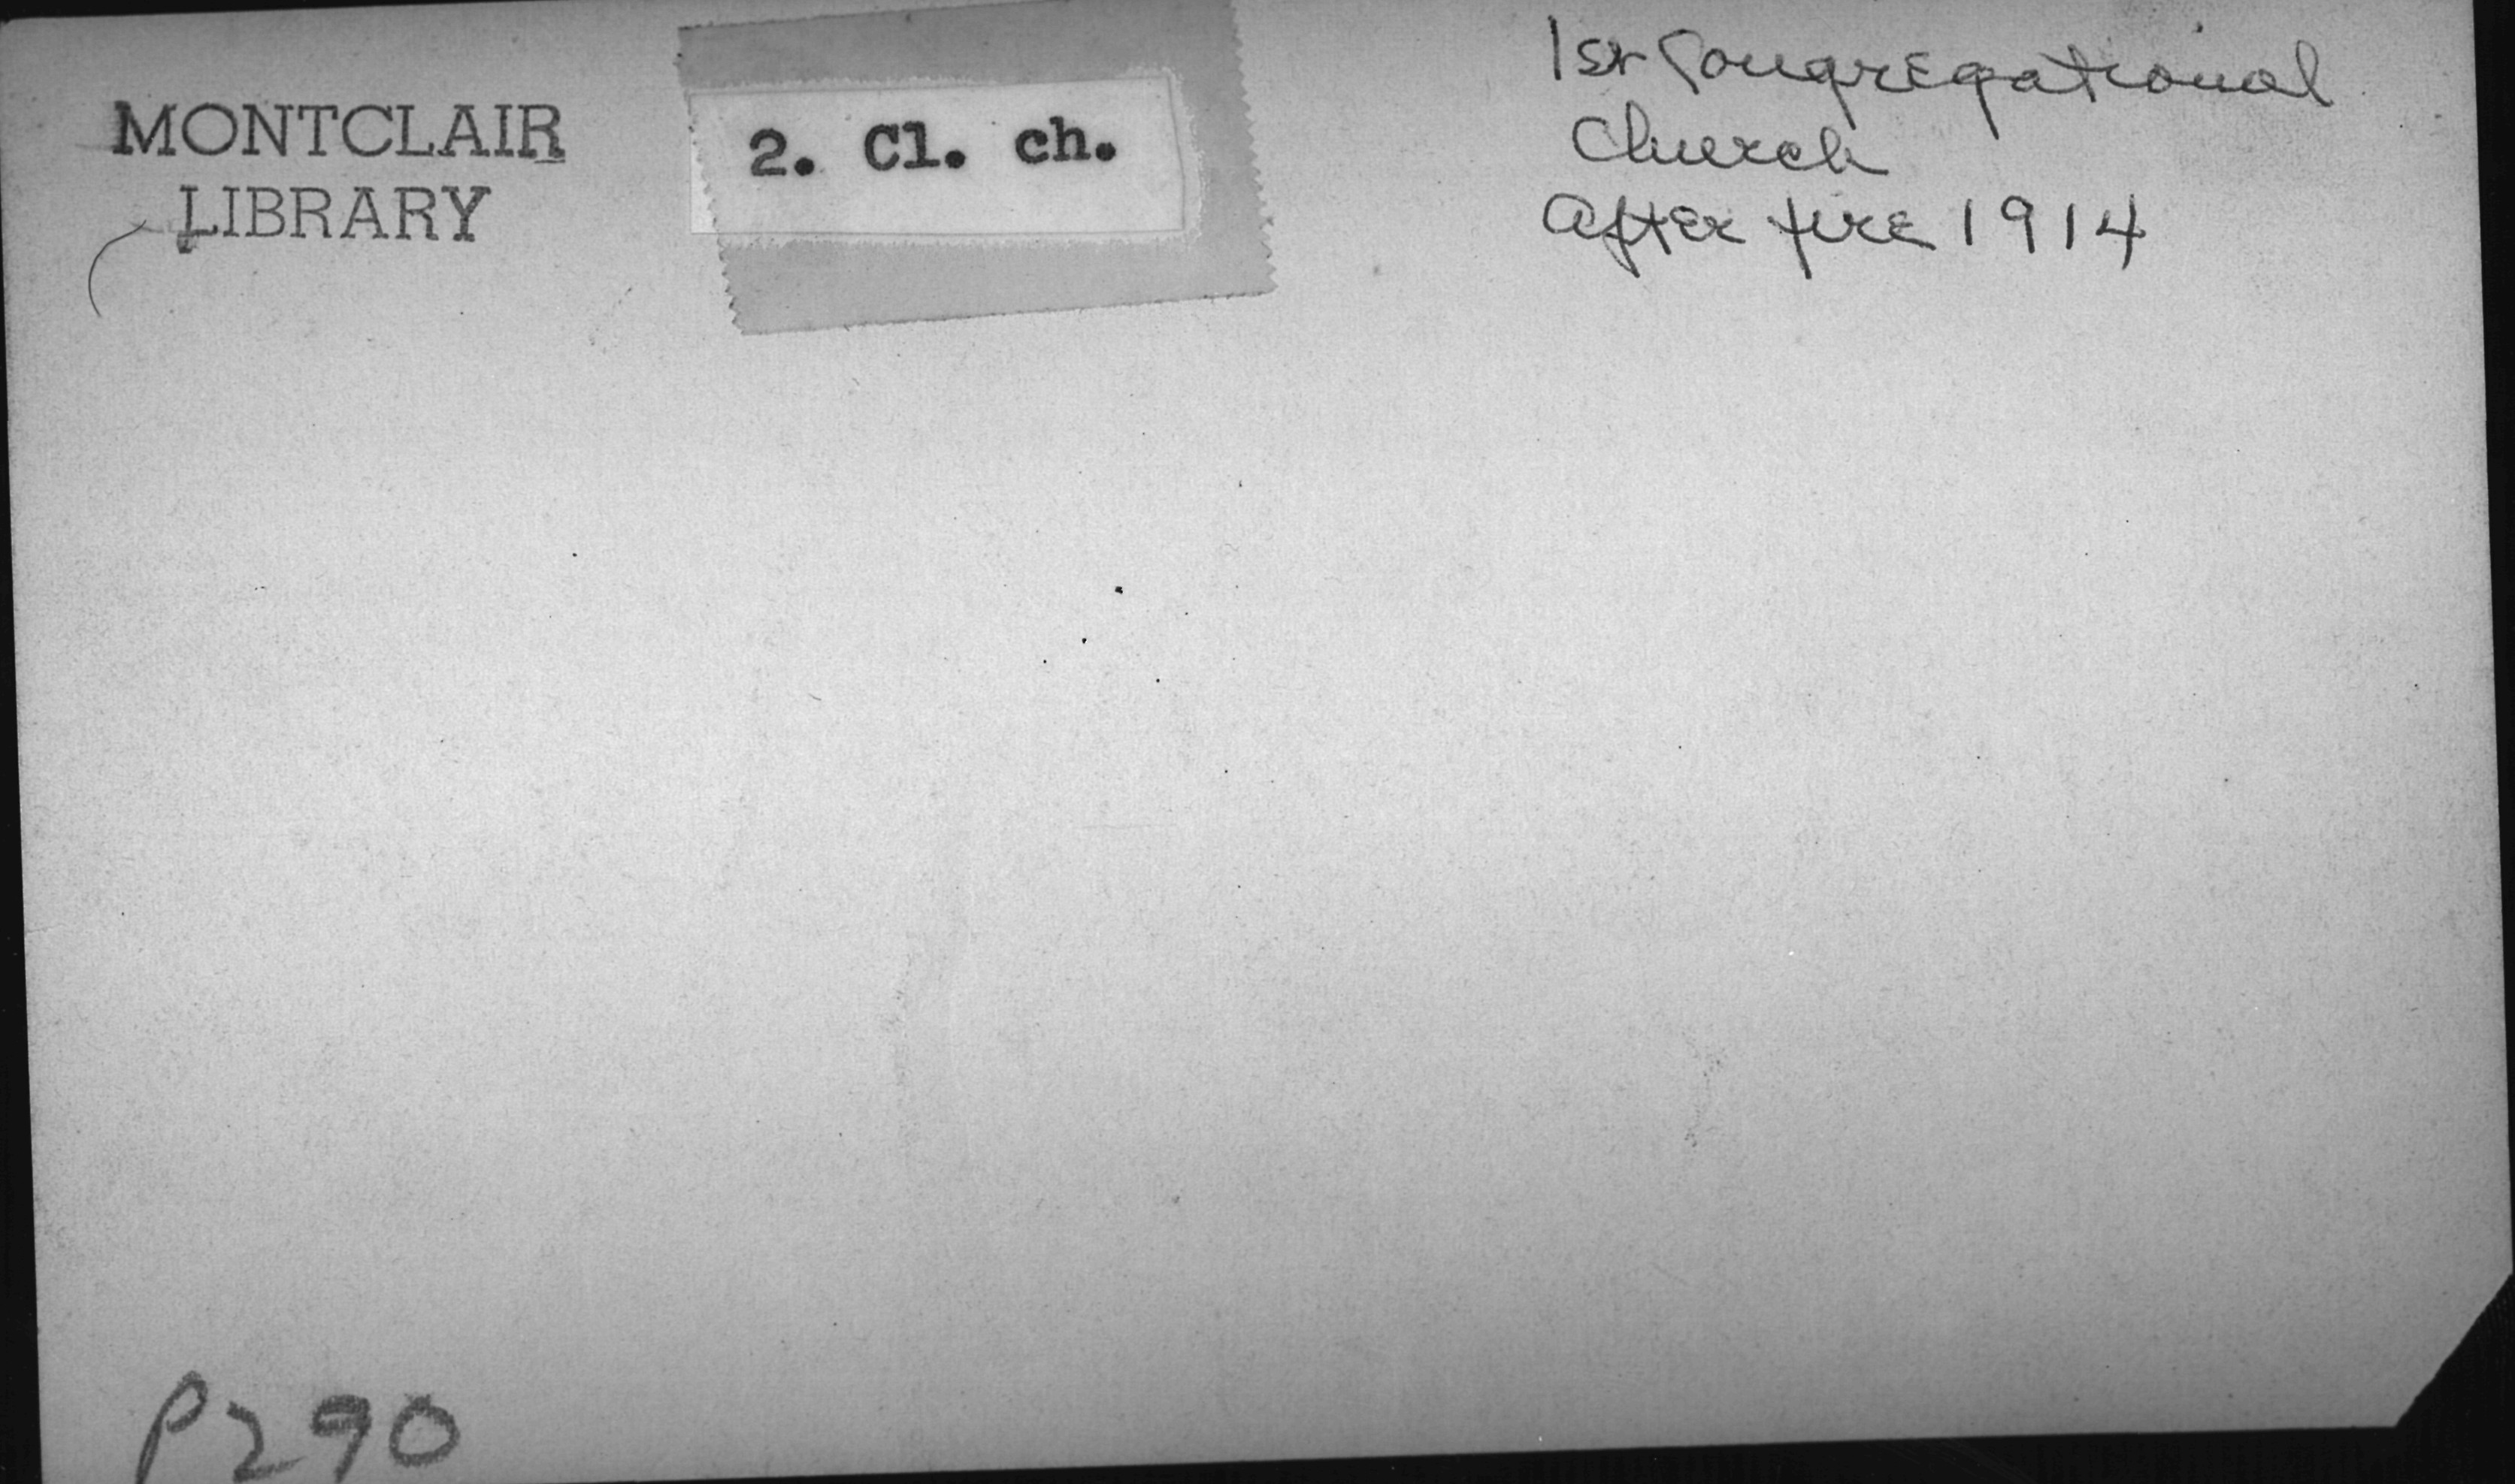 MONTCLAIR
LIBRARY
2. Cl. ch.
1st Congregational
Church
After fire 1914
P290